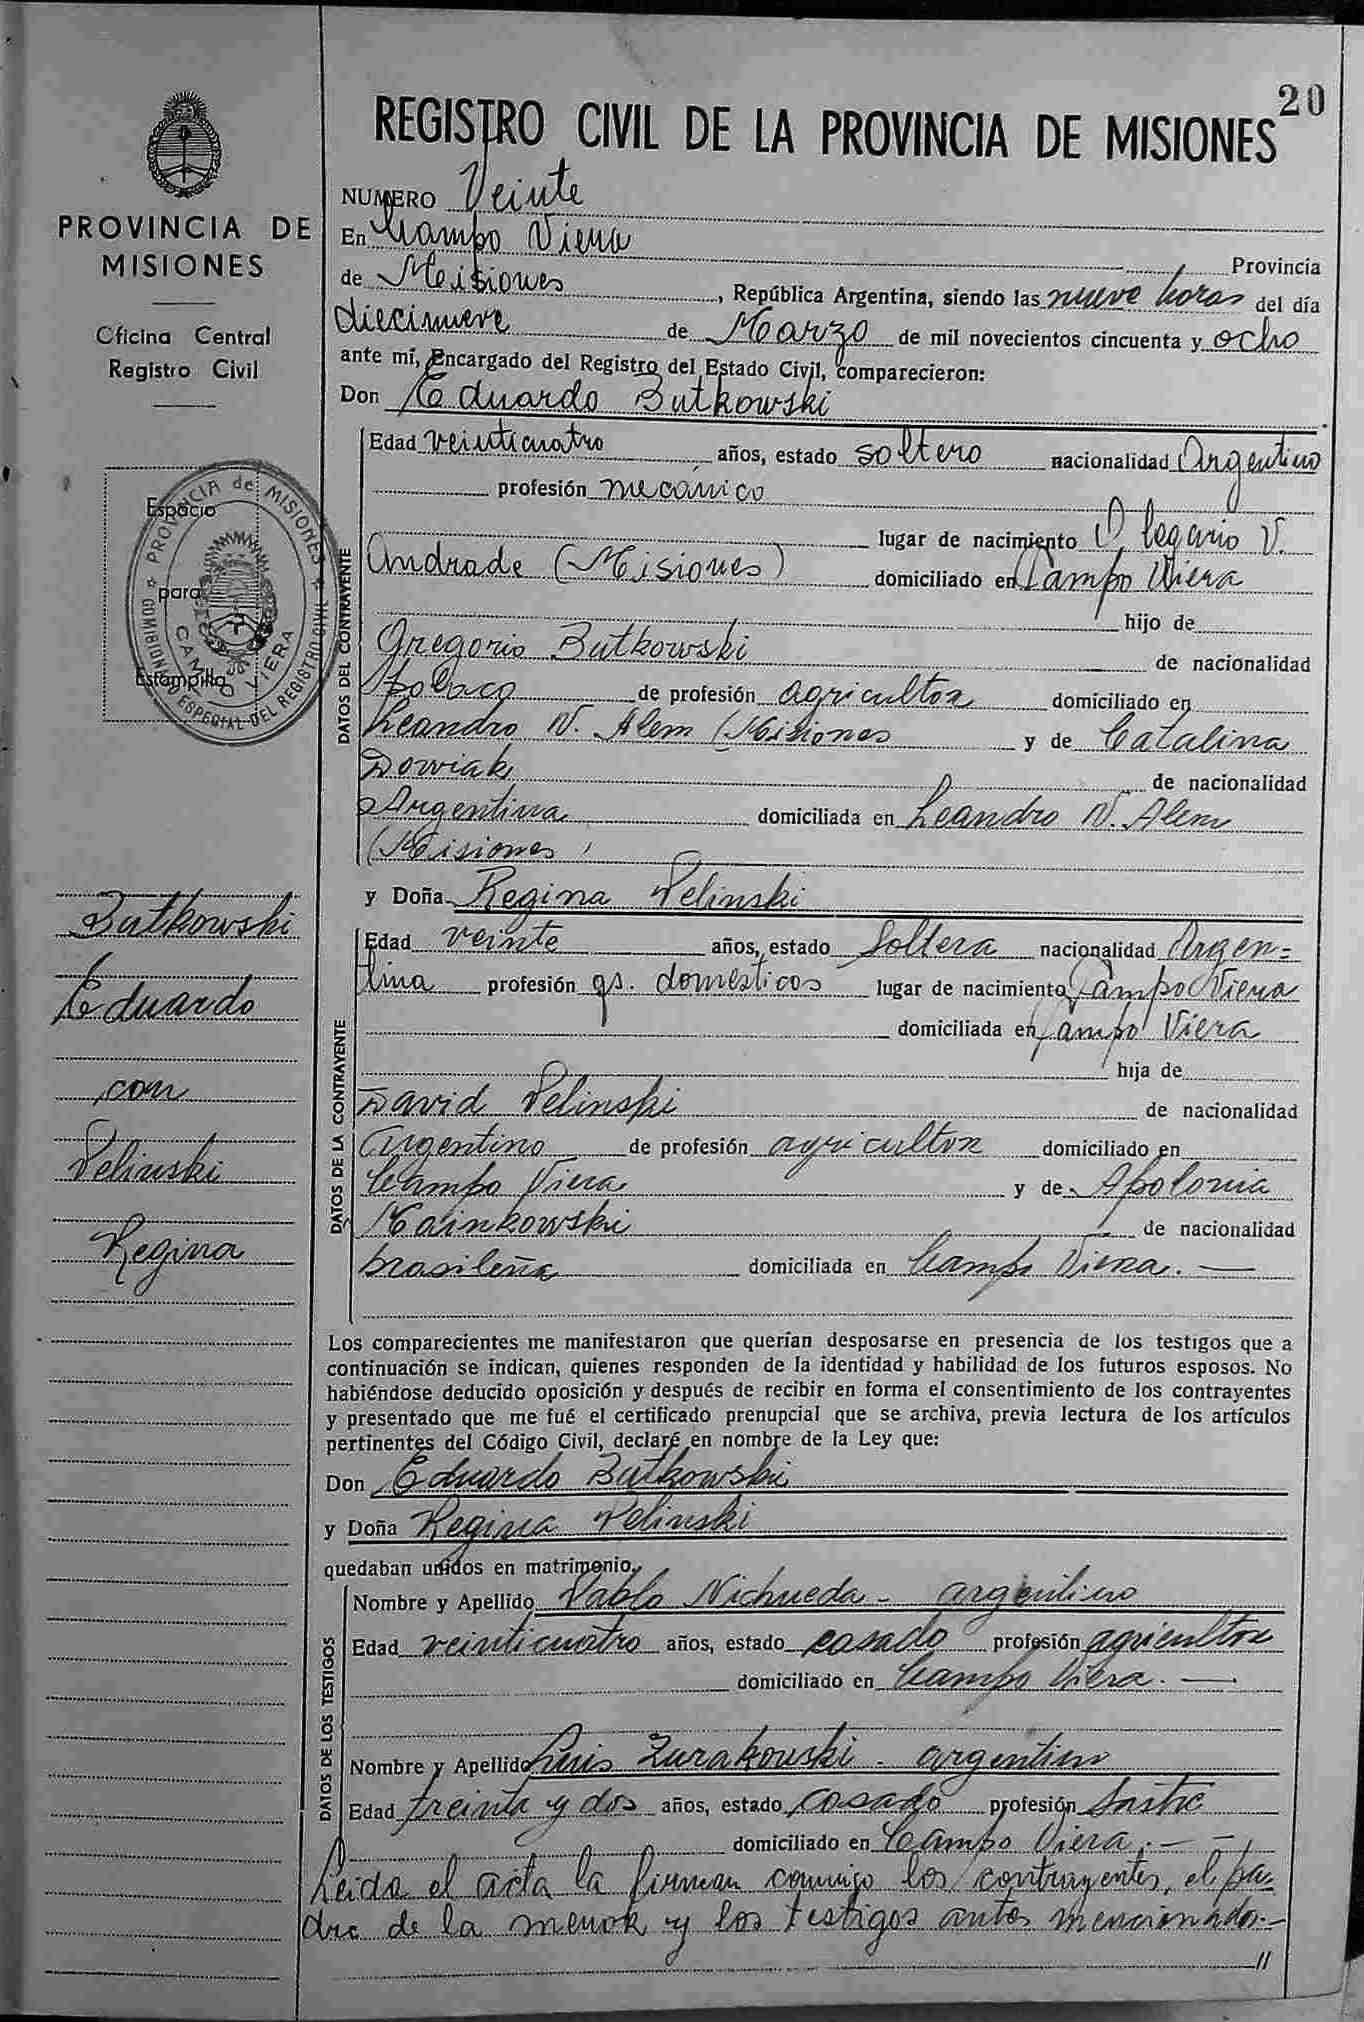 20
REGISTRO CIVIL DE LA PROVINCIA DE MISIONES
PROVINCIA DE
MISIONES
Oficina Central
Registro Civil
Espacio
para
Estampilla
PROVINCIA de MISIONES
COMISION ESPECIAL DEL REGISTRO CIVIL
CAMPO VIERA
Butkowski
Eduardo
con
Pelinski
Regina
NUMERO Veinte
En Campo Viera Provincia
de Misiones, República Argentina, siendo las nueve horas del día
diecinueve de Marzo de mil novecientos cincuenta y ocho
ante mí, Encargado del Registro del Estado Civil, comparecieron:
Don Eduardo Butkowski
DATOS DEL CONTRAYENTE
Edad veinticuatro años, estado soltero nacionalidad Argentino
profesión mecánico
lugar de nacimiento Olegario V.
Andrade (Misiones) domiciliado en Campo Viera
hijo de
Gregorio Butkowski de nacionalidad
polaca de profesión agricultor domiciliado en
Leandro N. Alem (Misiones y de Catalina
Dowiak de nacionalidad
Argentina domiciliada en Leandro N. Alem
(Misiones)
y Doña Regina Pelinski
DATOS DE LA CONTRAYENTE
Edad veinte años, estado Soltera nacionalidad Argen=
tina profesión qs. domésticos lugar de nacimiento Campo Viera
domiciliada en Campo Viera
hija de
David Pelinski de nacionalidad
argentino de profesión agricultor domiciliado en
Campo Viera y de Apolonia
Kainkowski de nacionalidad
brasileña domiciliada en Campo Viera. —
Los comparecientes me manifestaron que querían desposarse en presencia de los testigos que a
continuación se indican, quienes responden de la identidad y habilidad de los futuros esposos. No
habiéndose deducido oposición y después de recibir en forma el consentimiento de los contrayentes
y presentado que me fué el certificado prenupcial que se archiva, previa lectura de los artículos
pertinentes del Código Civil, declaré en nombre de la Ley que:
Don Eduardo Butkowski
y Doña Regina Pelinski
quedaban unidos en matrimonio.
DATOS DE LOS TESTIGOS
Nombre y Apellido Pablo Nichueda - argentino
Edad veinticuatro años, estado casado profesión agricultor
domiciliado en Campo Viera. —
Nombre y Apellido Luis Zurakouski - argentino
Edad treinta y dos años, estado casado profesión Sastre
domiciliado en Campo Viera. — —
Leida el acta la firman conmigo los contrayentes, el pa-
dre de la menor y los testigos antes mencionados.-
//